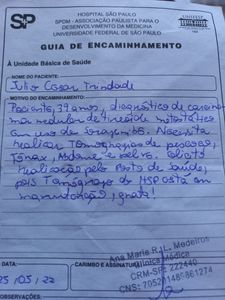 SP
HOSPITAL SÃO PAULO
SPDM - ASSOCIAÇÃO PAULISTA PARA O
DESENVOLVIMENTO DA MEDICINA
UNIVERSIDADE FEDERAL DE SÃO PAULO
UNIFESP
GUIA DE ENCAMINHAMENTO
À Unidade Básica de Saúde
NOME DO PACIENTE:
Julio Cesar Trindade
MOTIVO DO ENCAMINHAMENTO:
Paciente, 37 anos, diagnóstico de carcinoma
medular de tireoide metastático
em uso de Necessita
realizar Tomografias de pescoço,
Tórax, Abdome e pelve. Solicito
realização pelo Posto de Saúde,
pois Tomógrafo do HSP está em
manutenção, grata!
DATA:
CARIMBO E ASSINATURA
25/05/22
Ana Marie R. L. Medeiros
Clínica Médica
CRM-SP 222440
OBSERVAÇÕES